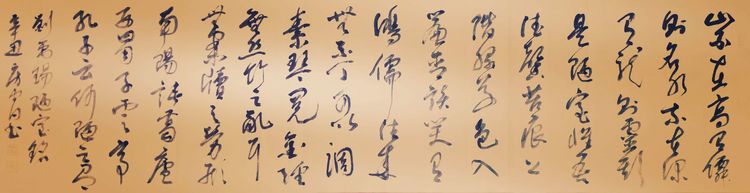 山不在高有僊
則名水不在深
有龍則靈斯
是陋室惟吾
德馨苔痕上
階綠草色入
簾青談笑有
鴻儒往來
無白丁可以調
素琴閱金經
無絲竹之亂耳
無案牘之勞形
南陽諸葛廬
西蜀子雲亭
孔子云何陋之有
劉禹錫陋室銘
辛丑書